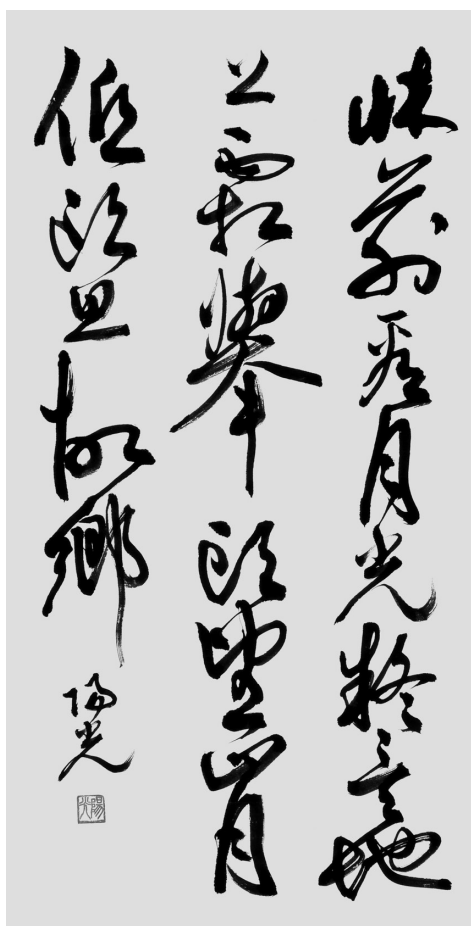 牀前看月光疑是地
上霜舉頭望山月
低頭思故鄉
陽光
陽光